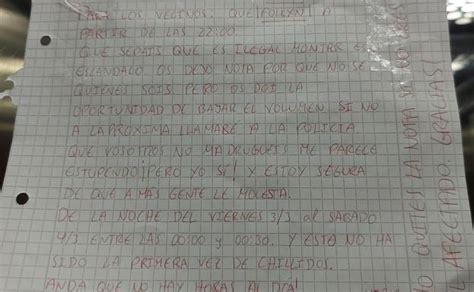 PARA LOS VECINOS QUE FOLLYN A
PARTIR DE LAS 22:00
QUE SEPAIS QUE ES ILEGAL MONTAR ES
ESCÁNDALO OS DEJO NOTA POR QUE NO SE
QUIENES SOIS PERO OS DOI LA
OPORTUNIDAD DE BAJAR EL VOLUMEN SI NO
A LA PROXIMA LLAMARÉ YA LA POLICIA
QUE VOSOTROS NO MADRUGUEIS ME PARECE
ESTUPENDO ¡PERO YO SI! Y ESTOY SEGURA
DE QUE A MAS GENTE LE MOLESTA.
DE LA NOCHE DEL VIERNES 3/3 al SABADO
4/3 ENTRE LAS 00:00 y 00:30. Y ESTO NO HA
SIDO LA PRIMERA VEZ DE CHILLIDOS.
ANDA QUE NO HAY HORAS AL DIA!
NO QUITES LA NOTA SI NO ERES
EL AFECTADO. GRACIAS!